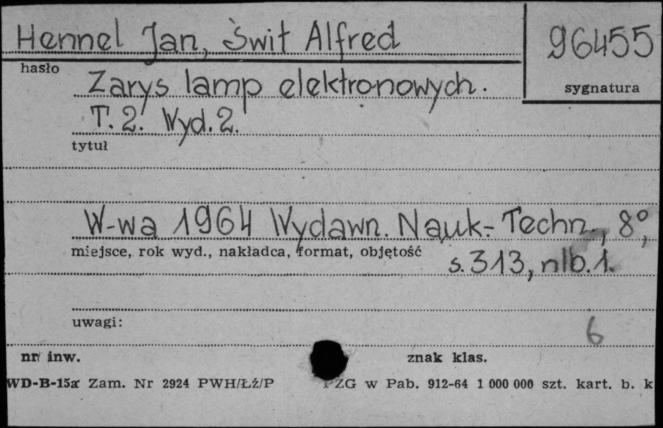 Hennel Jan, Świt Alfred
96455
hasło
sygnatura
Zarys lamp elektronowych.
T. 2. Wyd. 2.
tytuł
W-wa 1964 Wydawn. Nauk.-Techn., 8°,
miejsce, rok wyd., nakładca, format, objętość
s. 313, nlb. 1.
uwagi:
6
nr inw.
znak klas.
WD-B-15a Zam. Nr 2924 PWH/Łź/P PZG w Pab. 912-64 1 000 000 szt. kart. b. k